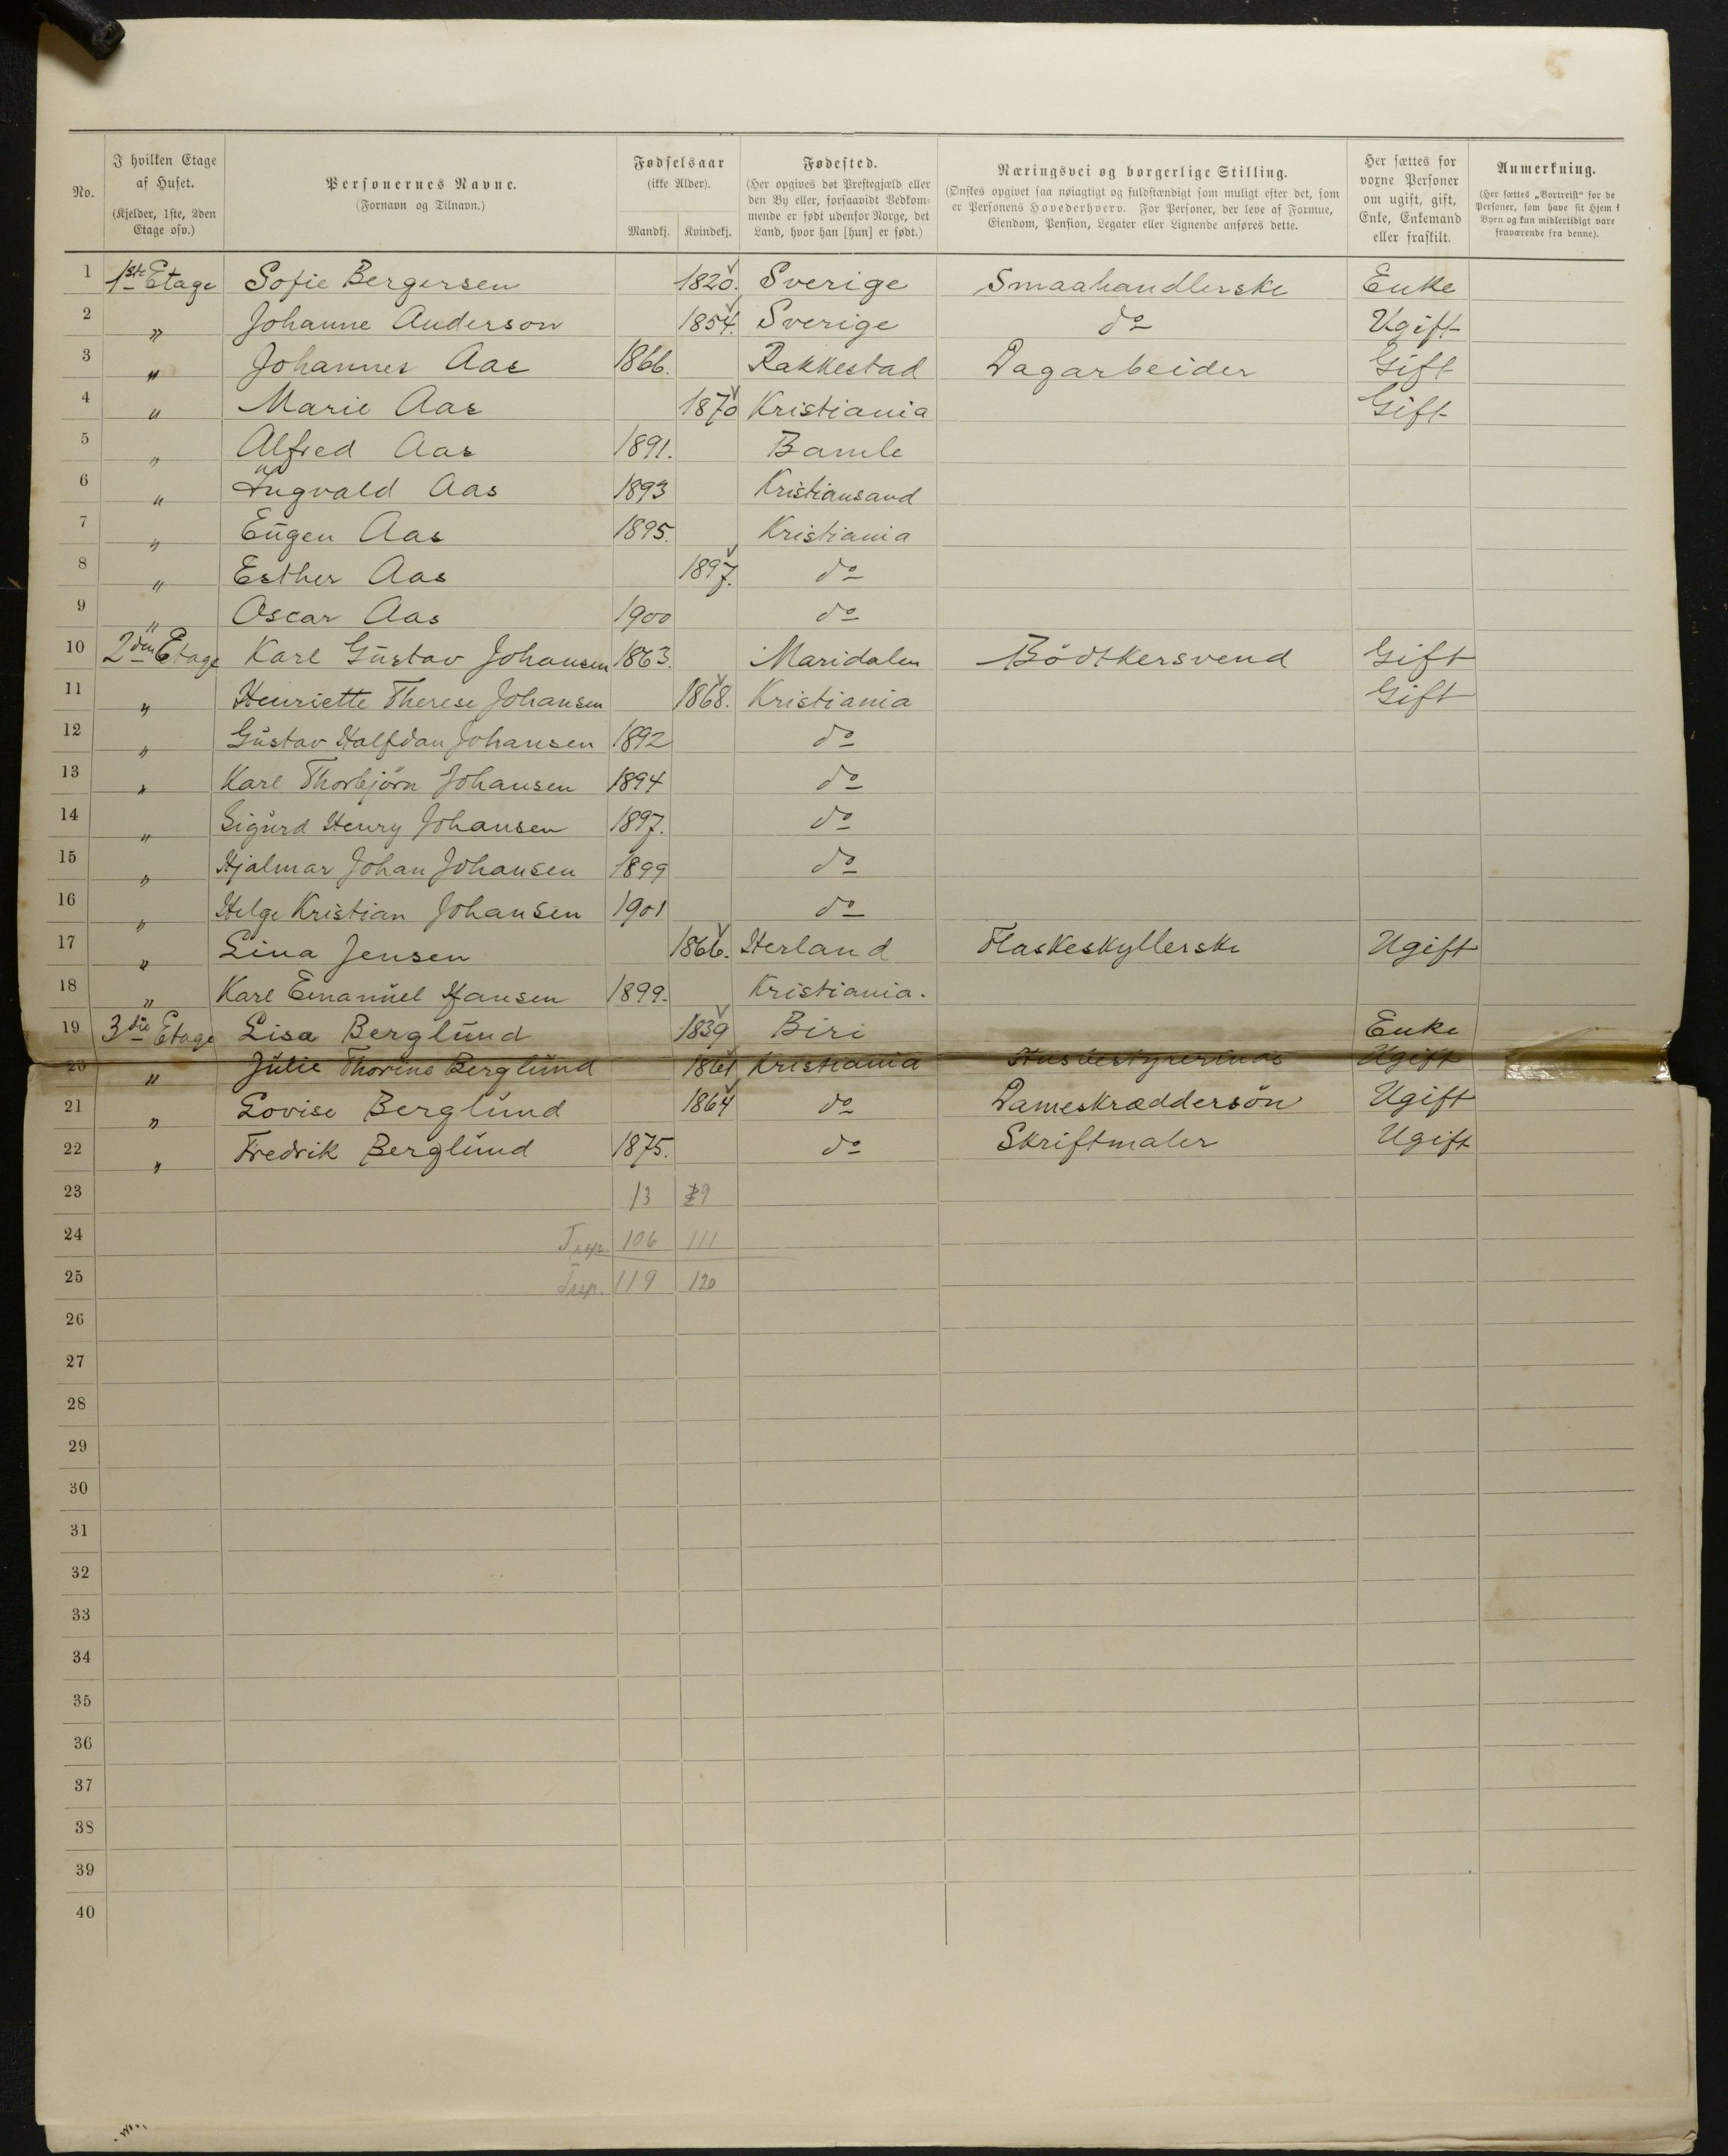 No. I hvilken Etage af Huset. (Kjelder, 1ste, 2den Etage osv.) Personernes Navne. (Fornavn og Tilnavn.) Fødselsaar (ikke Alder). Mandkj. Kvindekj. Fødested. (Her opgives det Prestegjæld eller den By eller, forsaavidt Vedkommende er født udenfor Norge, det Land, hvor han [hun] er født.) Næringsvei og borgerlige Stilling. (Ønskes opgivet saa nøiagtigt og fuldstændigt som muligt efter det, som er Personens Hovederhverv. For Personer, der leve af Formue, Eiendom, Pension, Legater eller Lignende anføres dette. Her sættes for voxne Personer om ugift, gift, Enke, Enkemand eller fraskilt. Anmerkning. (Her sættes „Bortreist“ for de Personer, som have sit Hjem i Byen og kun midlertidigt vare fraværende fra denne).
1 1ste Etage Sofie Bergersen 1820. Sverige Smaahandlerske Enke
2 " Johanne Anderson 1854. Sverige do Ugift
3 " Johannes Aas 1866. Rakkestad Dagarbeider Gift
4 " Marie Aas 1870 Kristiania Gift
5 " Alfred Aas 1891. Bamle
6 " Ingvald Aas 1893 Kristiansand
7 " Eugen Aas 1895. Kristiania
8 " Esther Aas 1897. do
9 " Oscar Aas 1900 do
10 2den Etage Karl Gustav Johansen 1863. Maridalen Bödtkersvend Gift
11 " Henriette Therese Johansen 1868. Kristiania Gift
12 " Gustav Halfdan Johansen 1892 do
13 " Karl Thorbjörn Johansen 1894 do
14 " Sigurd Henry Johansen 1897. do
15 " Hjalmar Johan Johansen 1899 do
16 " Helge Kristian Johansen 1901 do
17 " Lina Jensen 1866. Herland Flaskeskyllerske Ugift
18 " Karl Emanuel Hansen 1899. Kristiania.
19 3die Etage Lisa Berglund 1839 Biri Enke
20 " Julie Thorine Berglund 1861 Kristiania Husbestyrerinde Ugift
21 " Lovise Berglund 1864 do Dameskræddersön Ugift
22 " Fredrik Berglund 1875. do Skriftmaler Ugift
23 13 9
24 106 111
25 119 120
26
27
28
29
30
31
32
33
34
35
36
37
38
39
40